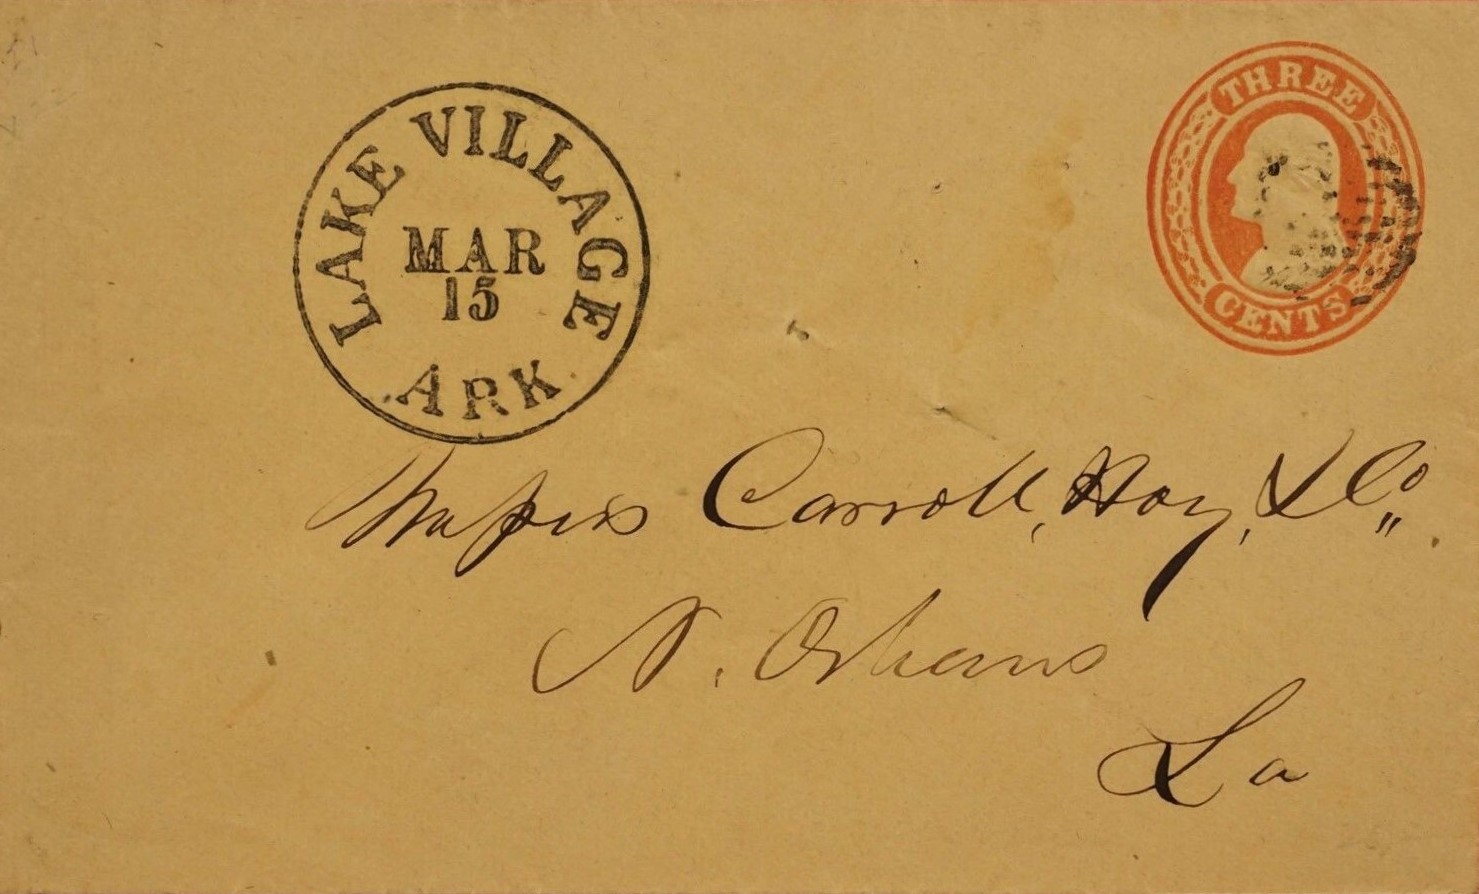 LAKE VILLAGE
MAR
15
ARK
THREE
CENTS
Messrs Carroll, Hoy, & Co.
N. Orleans
La